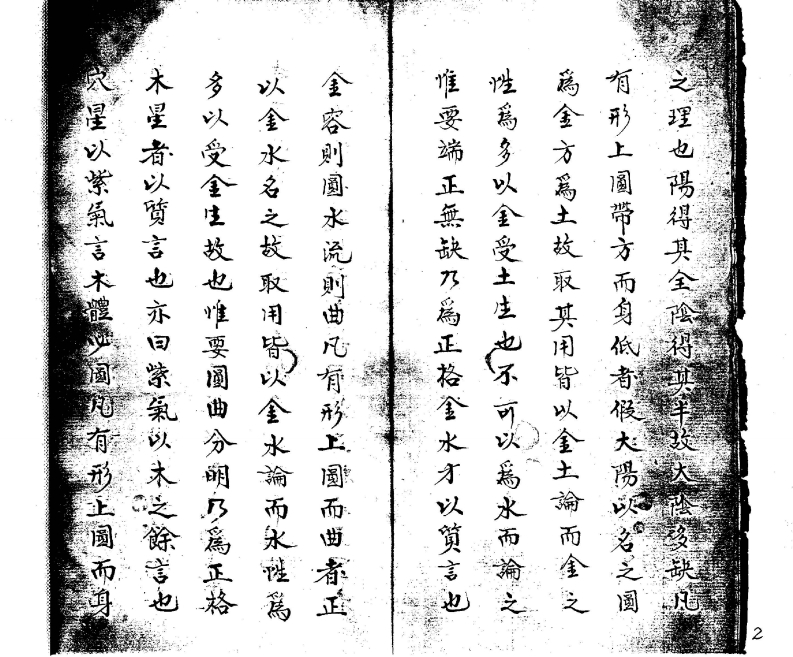 之理也陽得其全陰得其半故太陰多缺凡
有形上圓帶方而身低者假太陽以名之圓
爲金方爲土故取其用皆以金土論而金之
性爲多以金受土生也不可以爲水而論之
惟要端正無缺乃爲正格金水才以質言也
金容則圓水流則曲凡有形上圓而曲者正
以金水名之故取用皆以金水論而水性爲
多以受金生故也惟要圓曲分明乃爲正格
木星者以質言也亦曰紫氣以木之餘言也
穴星以紫氣言木體必圓凡有形上圓而身
2